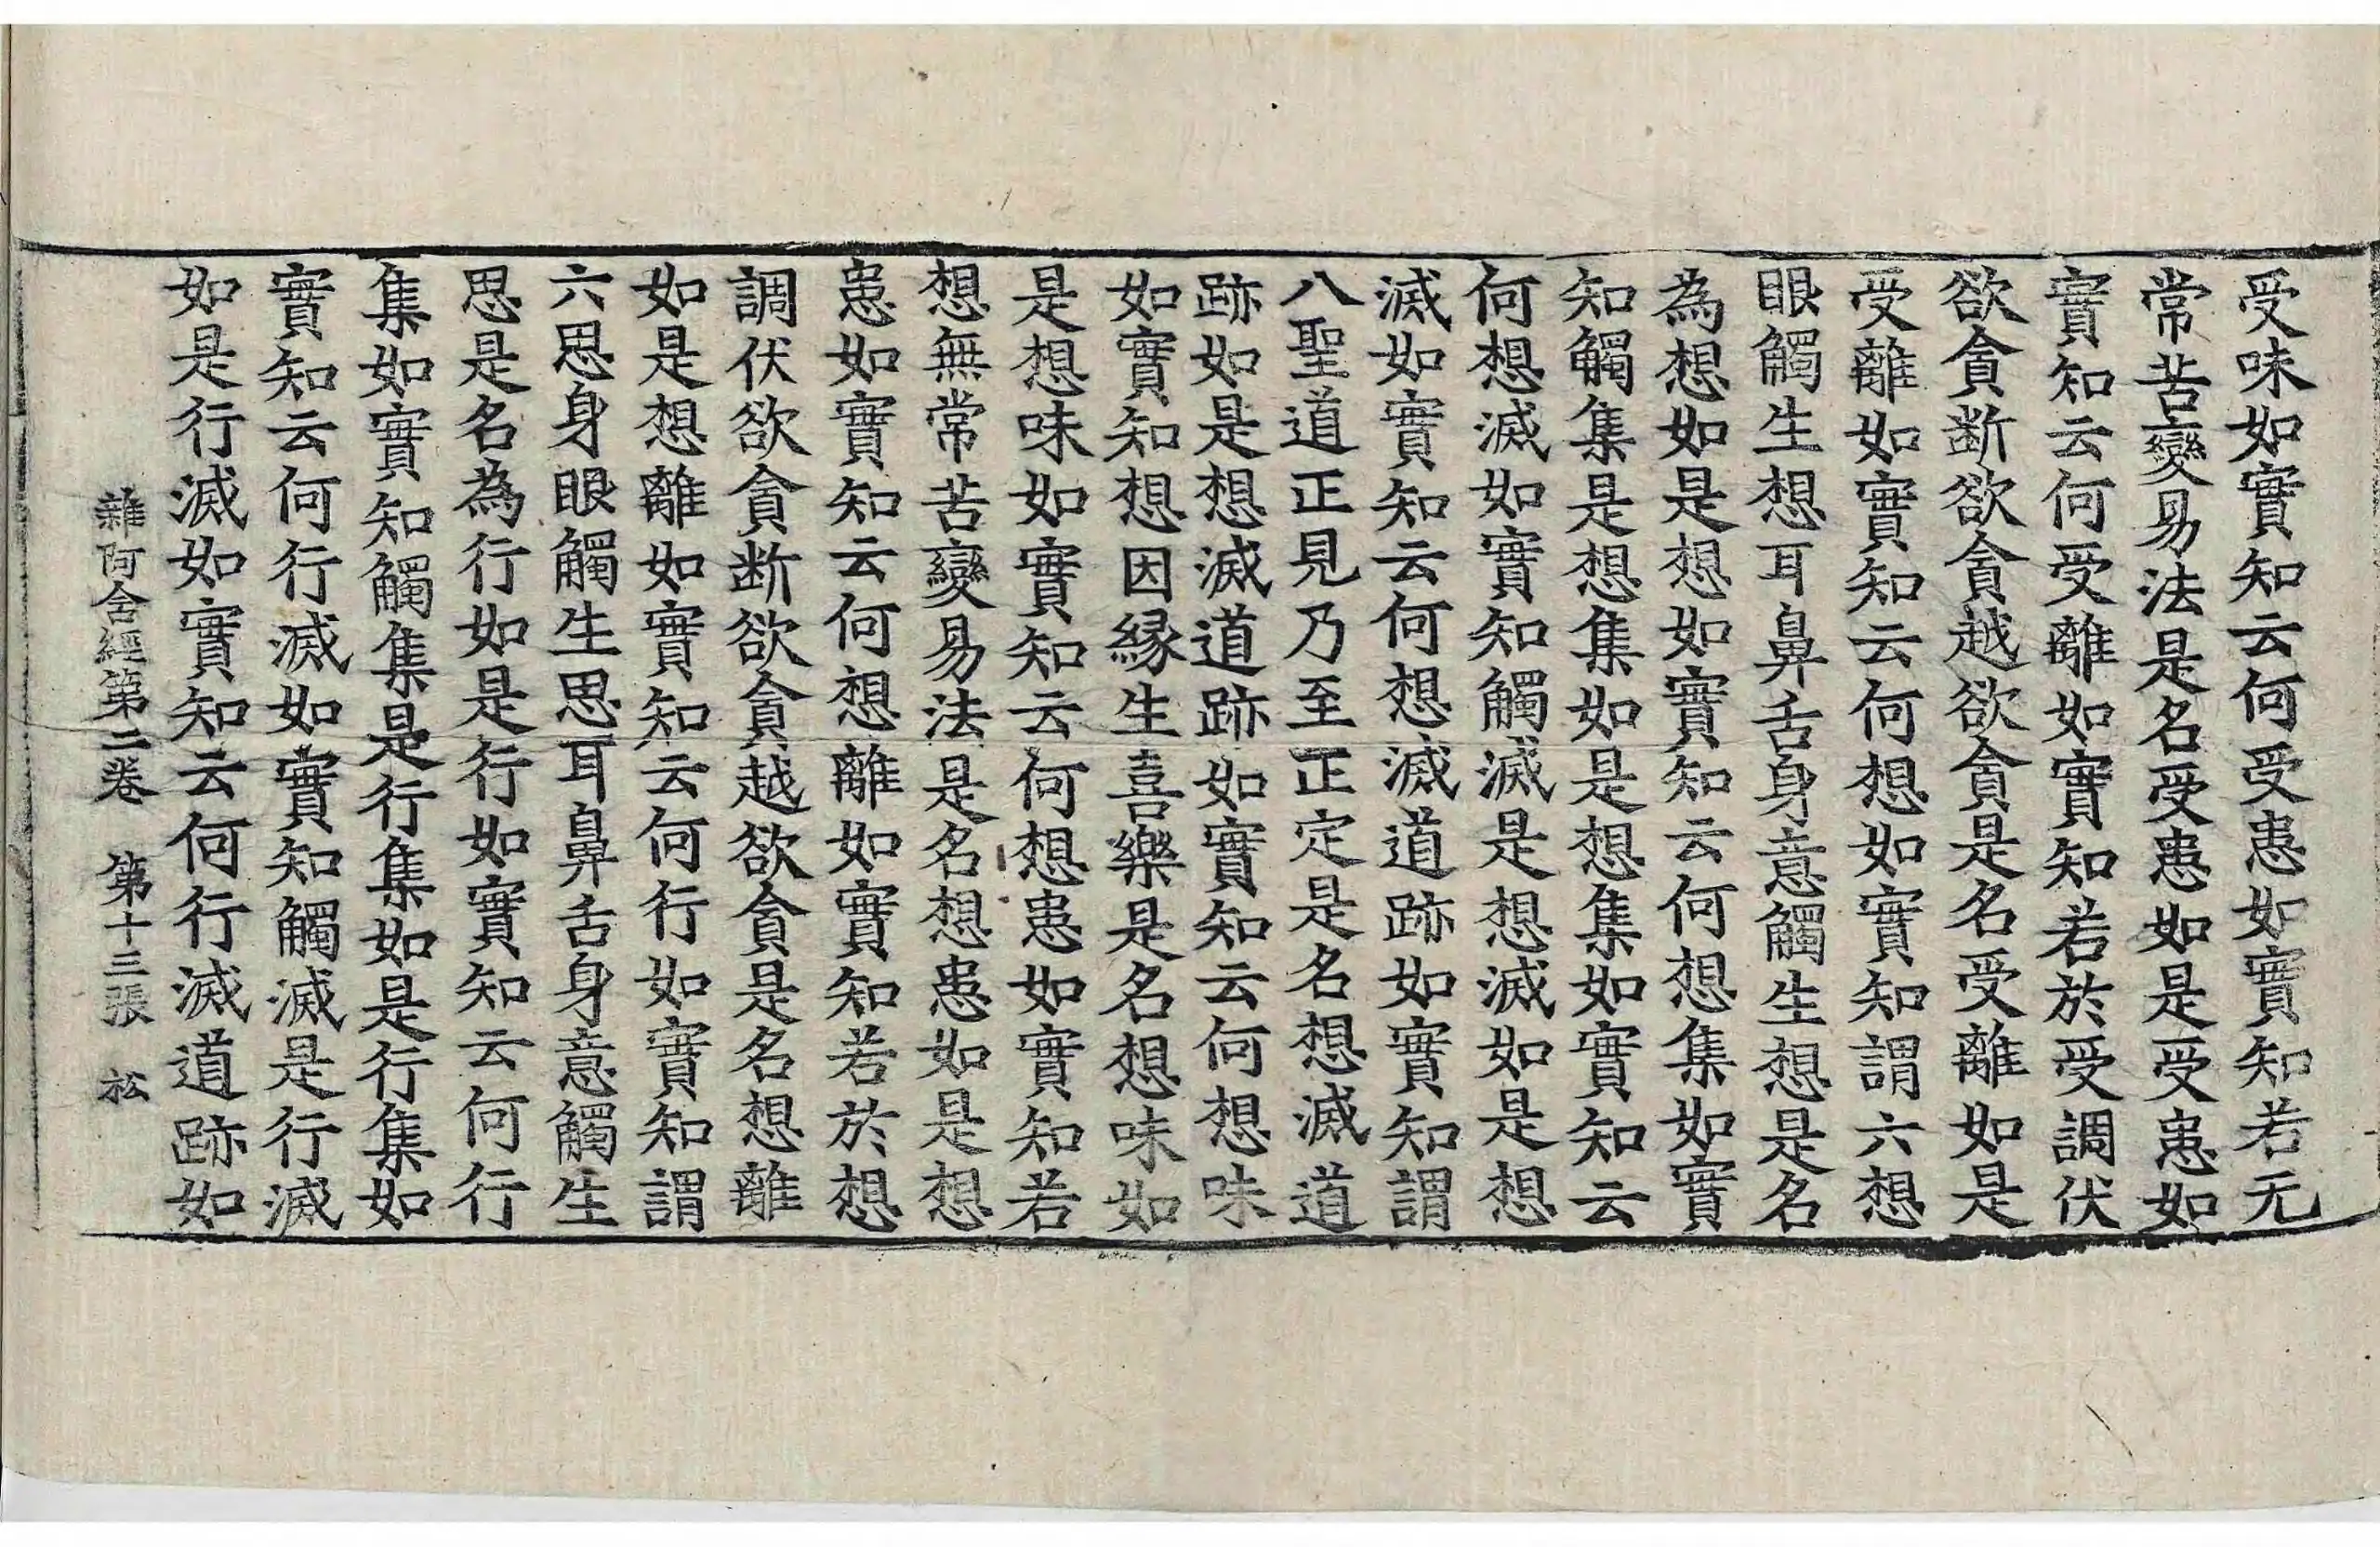 受味如實知云何受患如實知若无
常苦變易法是名受患如是受患如
實知云何受離如實知若於受調伏
欲貪断欲貪越欲貪是名受離如是
受離如實知云何想如實知謂六想
眼觸生想耳鼻舌身意觸生想是名
為想如是想如實知云何想集如實
知觸集是想集如是想集如實知云
何想滅如實知觸滅是想滅如是想
滅如實知云何想滅道跡如實知謂
八聖道正見乃至正定是名想滅道
跡如是想滅道跡如實知云何想味
如實知想因縁生喜樂是名想味如
是想味如實知云何想患如實知若
想無常苦變易法是名想患如是想
患如實知云何想離如實知若於想
調伏欲貪断欲貪越欲貪是名想離
如是想離如實知云何行如實知謂
六思身眼觸生思耳鼻舌身意觸生
思是名為行如是行如實知云何行
集如實知觸集是行集如是行集如
實知云何行滅如實知觸滅是行滅
如是行滅如實知云何行滅道跡如
雜阿含經第二卷　第十三張　松